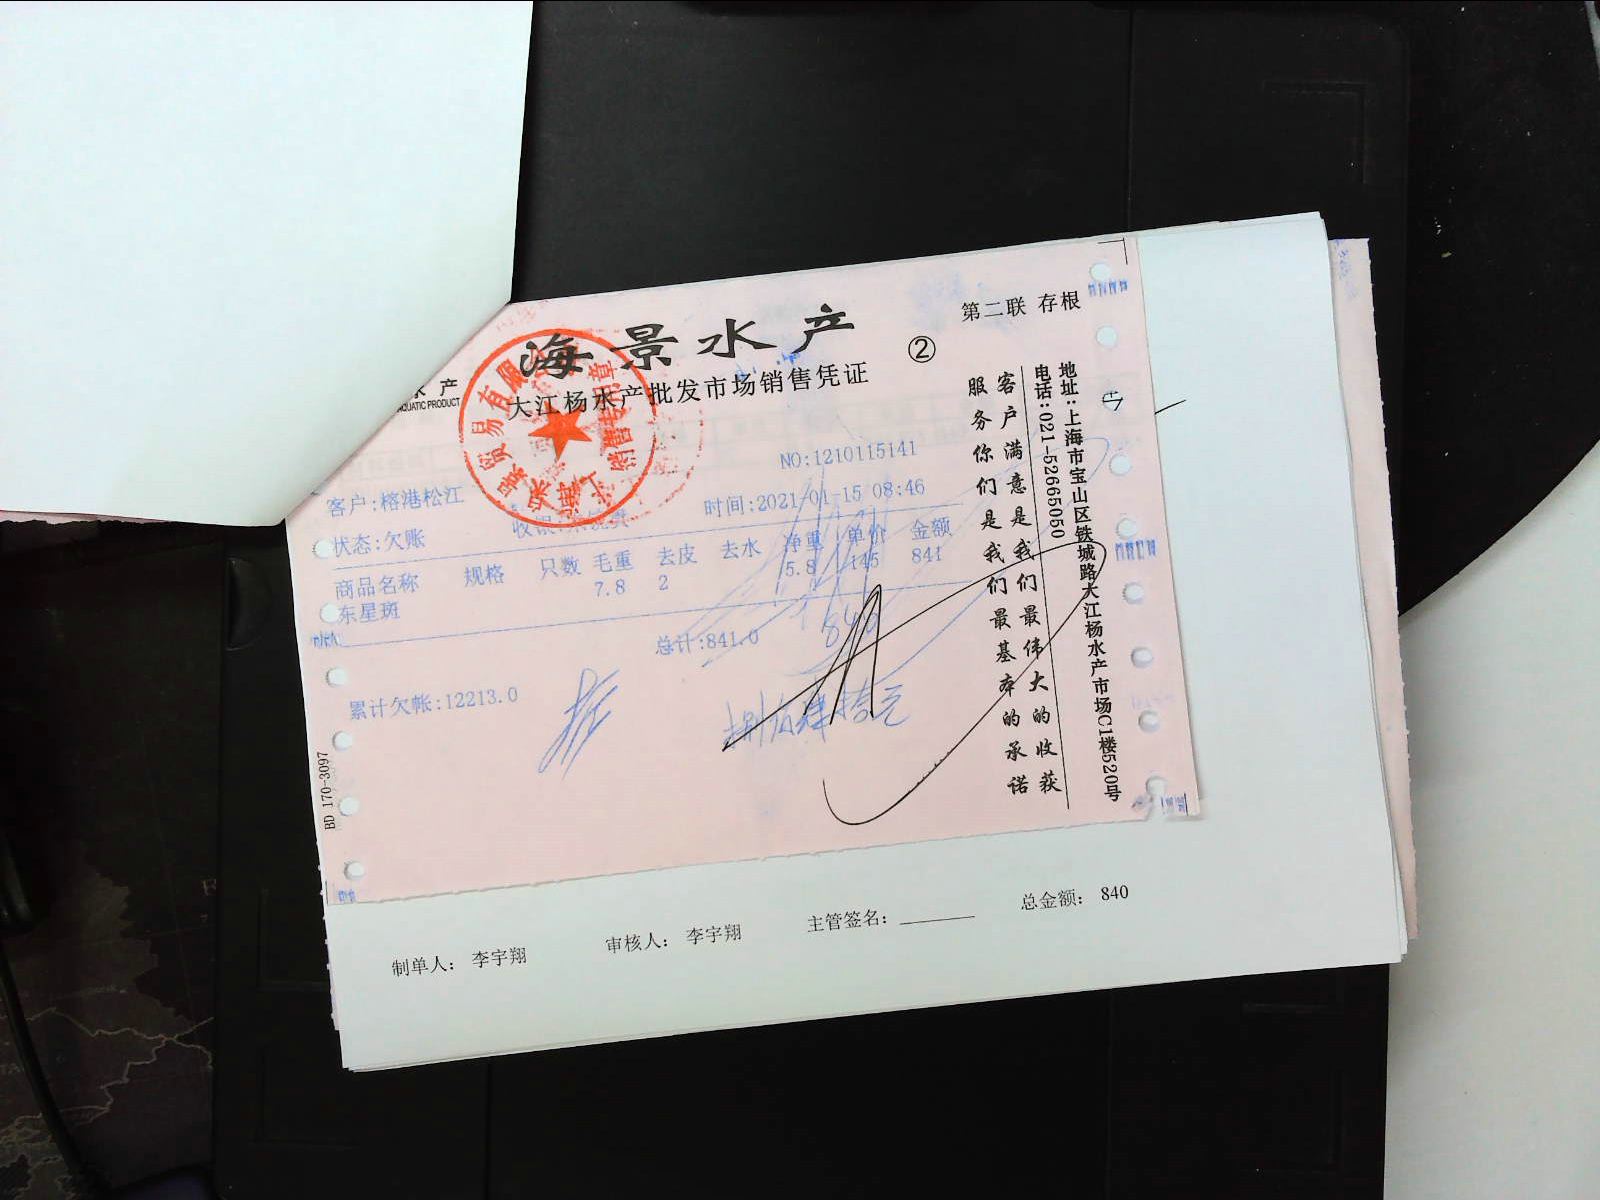 海景水产
第二联 存根
②
水产
AQUATIC PRODUCT
大江杨水产批发市场销售凭证
NO:1210115141
客户:榕港松江
时间:2021-01-15 08:46
状态:欠账
收银:
商品名称 规格 只数 毛重 去皮 去水 净重 单价 金额
东星斑 7.8 2 5.8 145 841
总计:841.0
840
累计欠帐:12213.0
捌佰肆拾元
BD 170-3097
客户满意是我们最伟大的收获
服务你们是我们最基本的承诺
地址:上海市宝山区铁城路大江杨水产市场C1楼520号
电话:021-52665050
贸易有限
销售专用章
制单人: 李宇翔 审核人: 李宇翔 主管签名: 总金额: 840